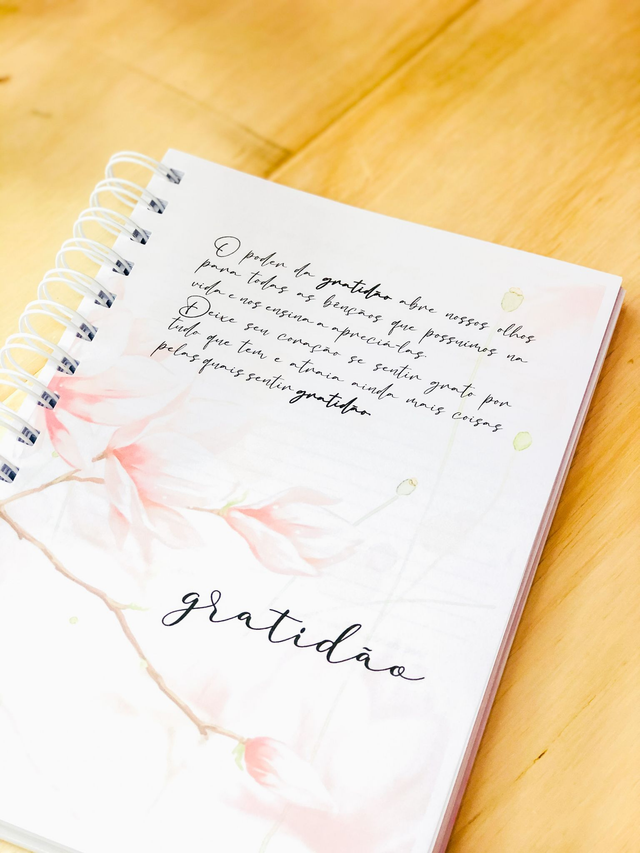 O poder da gratidão abre nossos olhos
para todas as bênçãos que possuímos na
vida e nos ensina a apreciá-las.
Deixe seu coração se sentir grato por
tudo que tem e atraia ainda mais coisas
pelas quais sentir gratidão
gratidão